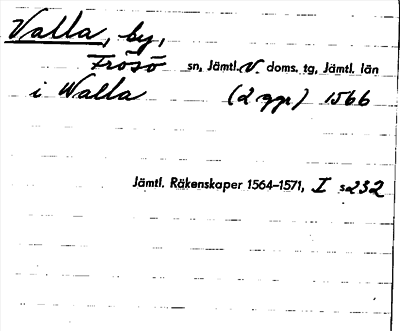 Valla, by,
Frösö sn, Jämtl. V. doms. tg, Jämtl. län
i Walla (2 ggr) 1566
Jämtl. Räkenskaper 1564–1571, I s 232